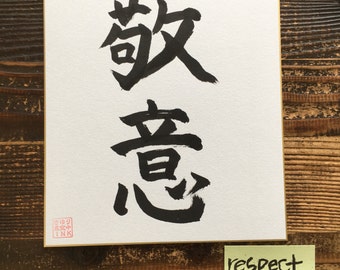 敬
意
respect